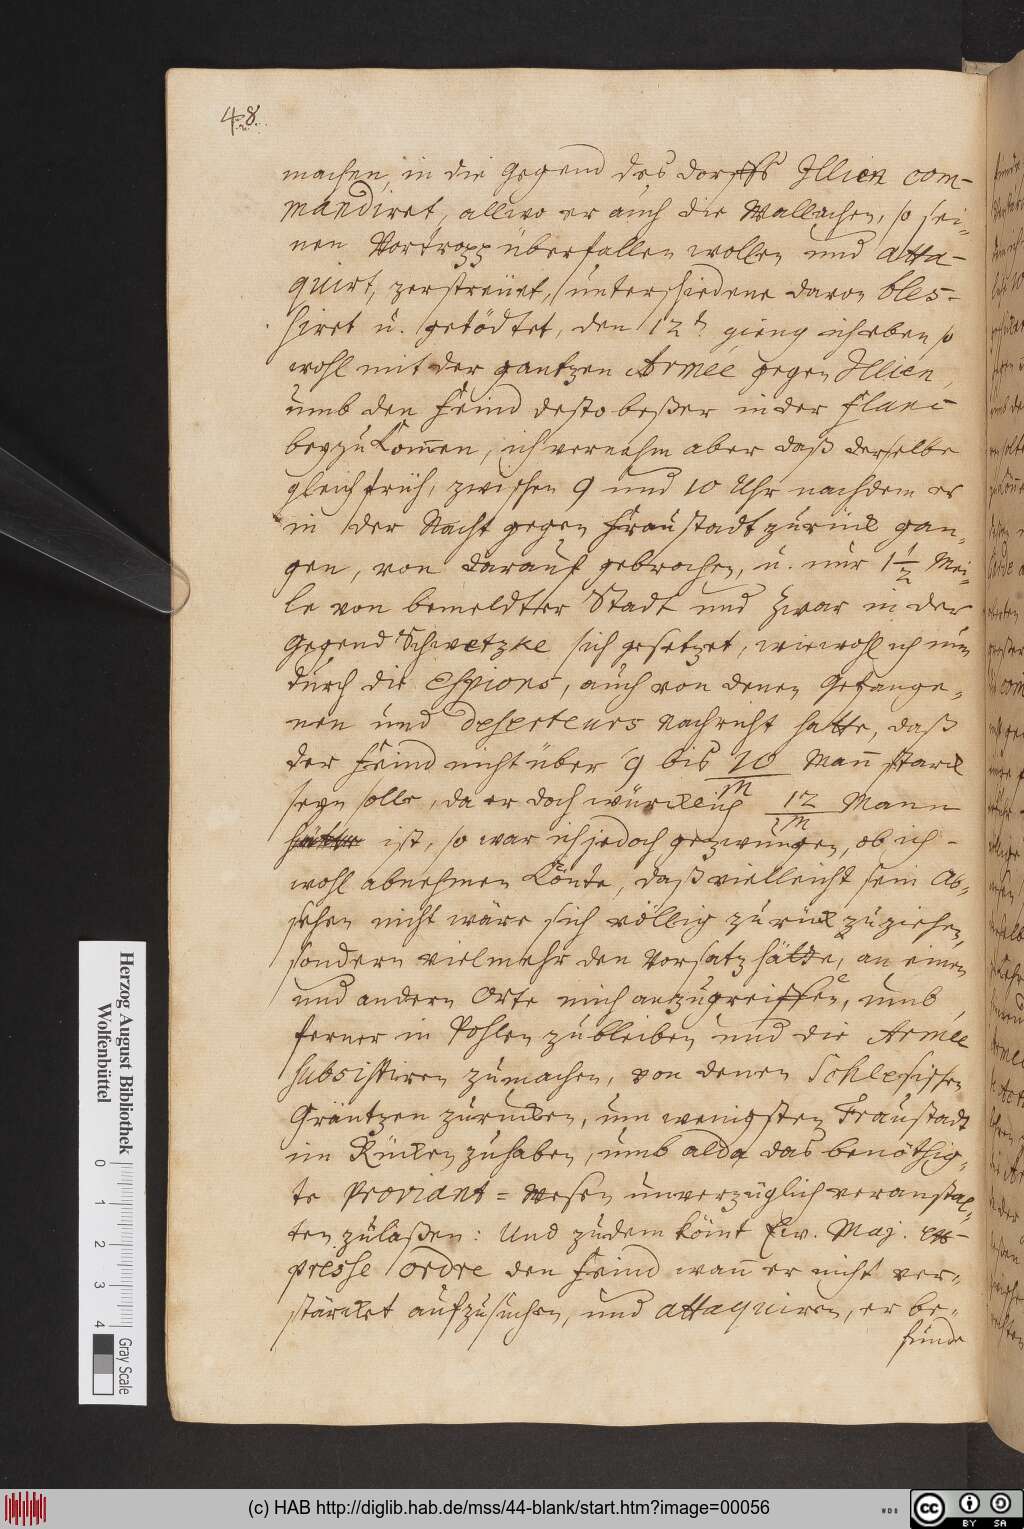 48.
machen, in die Gegend des dorffs Illien com-
mandiret, allwo er auch die Wallachen, so sei-
nen Vortropp überfallen wollen und atta-
quirt, zerstreüet, unterschiedene davon bles-
siret u. getödtet, den 12t gieng ich eben so
wohl mit der gantzen Armée gegen Illien,
umb den Feind desto beßer in der Flanc
beyzukom̅en, ich vernahm aber daß derselbe
gleich früh, zwischen 9 und 10 Uhr nachdem er
in der Nacht gegen Fraustadt zurück gan-
gen, von darauf gebrochen, u. nur 1 1/2 Mei-
le von bemeldter Stadt und zwar in der
Gegend Schwetzke sich gesetzet, wiewohl ich nun
durch die Espions, auch von denen Gefange-
nen und Deserteurs Nachricht hatte, daß
der Feind nicht über 9 bis 10/m Man̅ starck
seyn solle, da er doch würcklich 12/m Mann
hätte ist, so war ich jedoch gezwungen, ob ich -
wohl abnehmen könte, daß vielleicht sein Ab-
sehen nicht wäre sich völlig zurück zu ziehen,
sondern vielmehr den Vorsatz hätte, an einen
und andern Orte mich anzugreiffen, umb
ferner in Pohlen zu bleiben und die Armée
subsistiren zu machen, von denen Schlesischen
Gräntzen zurucken, um wenigsten Fraustadt
im Rücken zu haben, umb alda das benöthig-
te Proviant = Wesen unverzüglich veranstal-
ten zulaßen: Und zudem kömt Ew. Maj. ex-
presse Ordre den Feind wan̅ er nicht ver-
stärcket aufzusuchen, und attaquiren, er be-
funde
Herzog August Bibliothek
Wolfenbüttel
0 1 2 3 4
Gray Scale
(c) HAB http://diglib.hab.de/mss/44-blank/start.htm?image=00056
WDB
cc BY SA